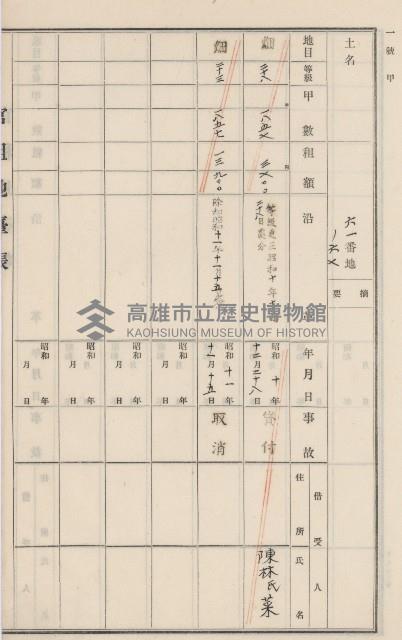 一號甲
土名
六一番地
ノ六七
摘要
地目
等級
甲數
租額
沿革
年月日
事故
借受人
住所
氏名
畑
二六
一八五七
三七〇〇
等級更正昭和十年十
二十八日處分
昭和十年
十二月二十八日
貸付
陳林氏菜
畑
二十三
一八五七
一三九〇〇
除却昭和十一年十一月十五日
昭和十一年
十一月十五日
取消
昭和 年
月 日
昭和 年
月 日
昭和 年
月 日
昭和 年
月 日
官租地臺帳
高雄市立歷史博物館
KAOHSIUNG MUSEUM OF HISTORY